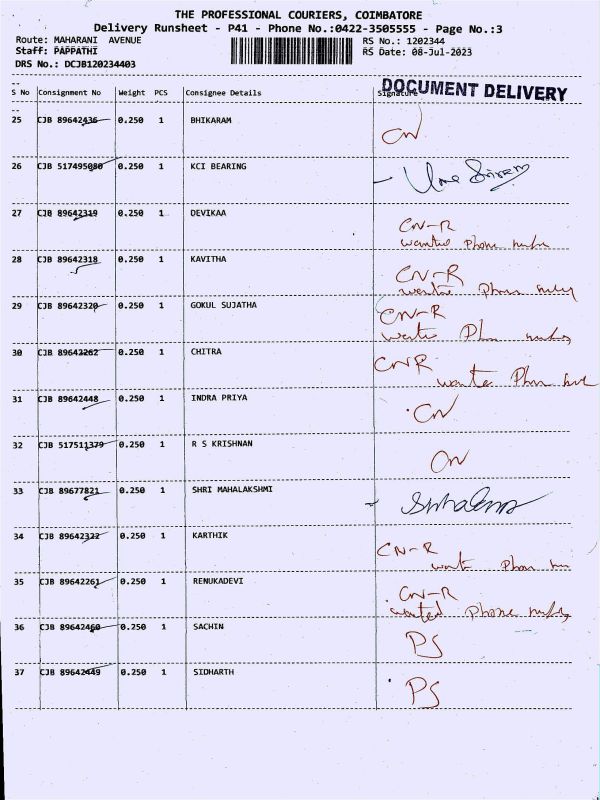 THE PROFESSIONAL COURIERS, COIMBATORE
Delivery Runsheet - P41 - Phone No.:0422-3505555 - Page No.:3
Route: MAHARANI AVENUE RS No.: 1202344
Staff: PAPPATHI RS Date: 08-Jul-2023
DRS No.: DCJB120234403
DOCUMENT DELIVERY
S No Consignment No Weight PCS Consignee Details Signature
25 CJB 89642436 0.250 1 BHIKARAM CN
26 CJB 517495080 0.250 1 KCI BEARING
27 CJB 89642319 0.250 1 DEVIKAA CN-R
wanted phone
28 CJB 89642318 0.250 1 KAVITHA CN-R
29 CJB 89642320 0.250 1 GOKUL SUJATHA CN-R
30 CJB 89642262 0.250 1 CHITRA CNR
31 CJB 89642448 0.250 1 INDRA PRIYA CN
32 CJB 517511379 0.250 1 R S KRISHNAN CN
33 CJB 89677821 0.250 1 SHRI MAHALAKSHMI
34 CJB 89642322 0.250 1 KARTHIK CN-R
35 CJB 89642261 0.250 1 RENUKADEVI CN-R
wanted phone
36 CJB 89642460 0.250 1 SACHIN PS
37 CJB 89642449 0.250 1 SIDHARTH PS